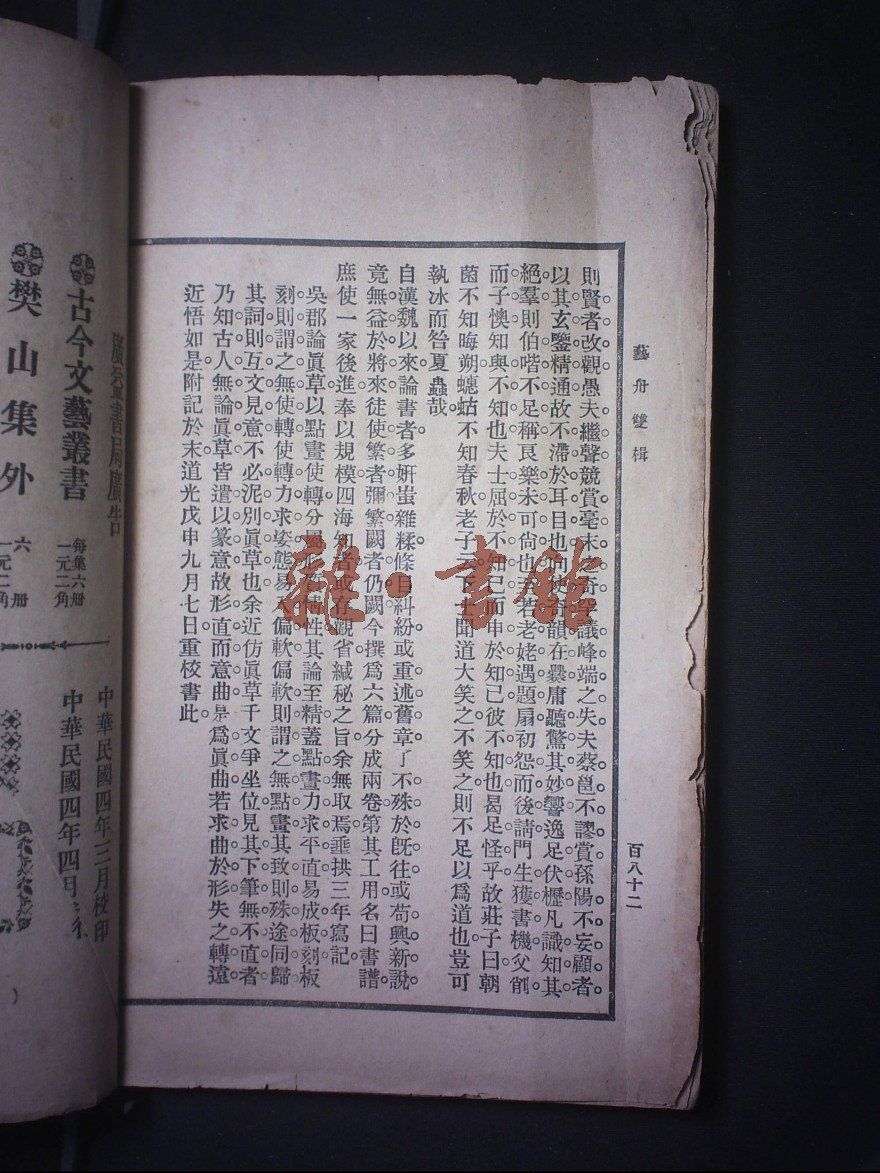 藝舟雙楫
百八十二
則賢者改觀愚夫繼聲競賞毫末之奇罕議峰端之失夫蔡邕不謬賞孫陽不妄顧者
以其玄鑒精通故不滯於耳目也向使奇韻在爨庸聽驚其妙響逸足伏櫪凡識知其
絕羣則伯喈不足稱良樂未可尚也至若老姥遇題扇初怨而後請門生獲書機父削
而子懊知與不知也夫士屈於不知己而申於知己彼不知也曷足怪乎故莊子曰朝
菌不知晦朔蟪蛄不知春秋老子云下士聞道大笑之不笑之則不足以爲道也豈可
執冰而咎夏蟲哉
自漢魏以來論書者多姸蚩雜糅條目糾紛或重述舊章了不殊於旣往或苟興新說
竟無益於將來徒使繁者彌繁闕者仍闕今撰爲六篇分成兩卷第其工用名曰書譜
庶使一家後進奉以規模四海知音或存觀省緘秘之旨余無取焉垂拱三年寫記
吳郡論眞草以點畫使轉分屬形質情性其論至精蓋點畫力求平直易成板刻板
刻則謂之無使轉使轉力求姿態易入偏軟偏軟則謂之無點畫其致則殊途同歸
其詞則互文見意不必泥別眞草也余近仿眞草千文爭坐位見其下筆無不直者
乃知古人無論眞草皆遣以篆意故形直而意曲是爲眞曲若求曲於形失之轉遠
近悟如是附記於末道光戊申九月七日重校書此
廣益書局廣告
古今文藝叢書
每集六册
一元二角
樊山集外
六册
一元二角
中華民國四年三月校印
中華民國四年四月